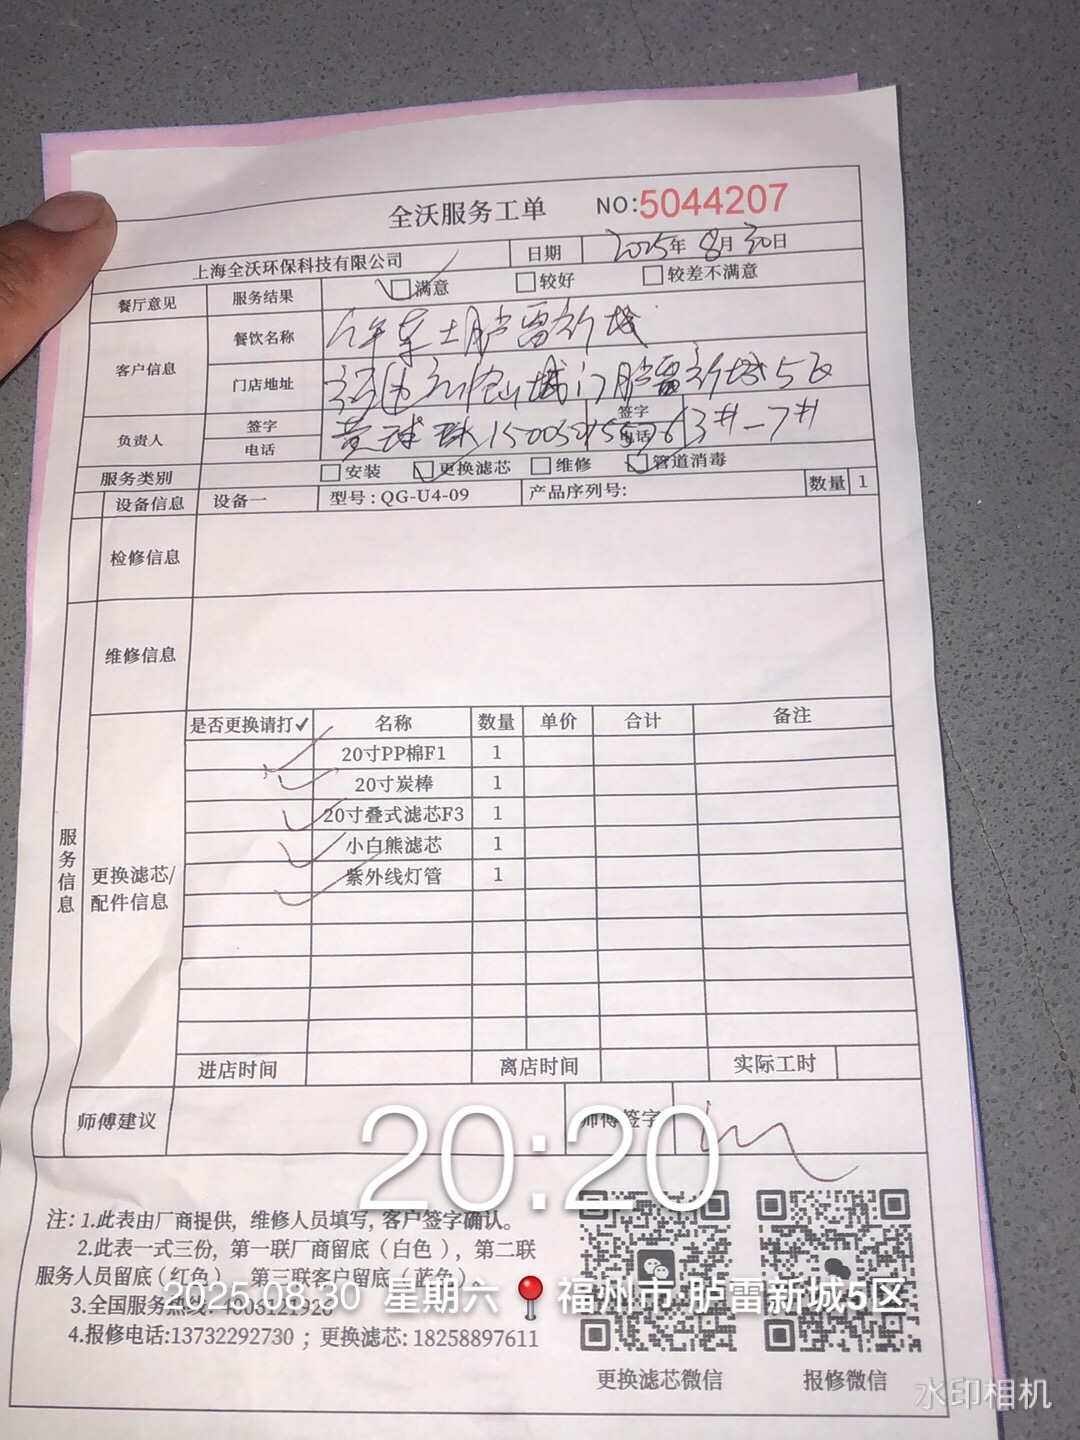 全沃服务工单 NO:5044207
上海全沃环保科技有限公司 日期 2025年 8月 30日
餐厅意见 服务结果 满意 较好 较差不满意
客户信息 餐饮名称 胪雷新城
门店地址 城门胪雷新城5区
负责人 签字 签字 3#-7#
电话 电话
服务类别 安装 更换滤芯 维修 管道消毒
设备信息 设备一 型号:QG-U4-09 产品序列号: 数量 1
检修信息
维修信息
服务信息
更换滤芯/
配件信息
是否更换请打✓ 名称 数量 单价 合计 备注
✓ 20寸PP棉F1 1
✓ 20寸炭棒 1
✓ 20寸叠式滤芯F3 1
✓ 小白熊滤芯 1
✓ 紫外线灯管 1
进店时间 离店时间 实际工时
师傅建议 师傅签字
20:20
注: 1.此表由厂商提供, 维修人员填写, 客户签字确认。
2.此表一式三份, 第一联厂商留底(白色), 第二联
服务人员留底(红色) 第三联客户留底(蓝色)。
2025.08.30 星期六 福州市·胪雷新城5区
3.全国服务热线:
4.报修电话:13732292730 ; 更换滤芯: 18258897611
更换滤芯微信 报修微信
水印相机